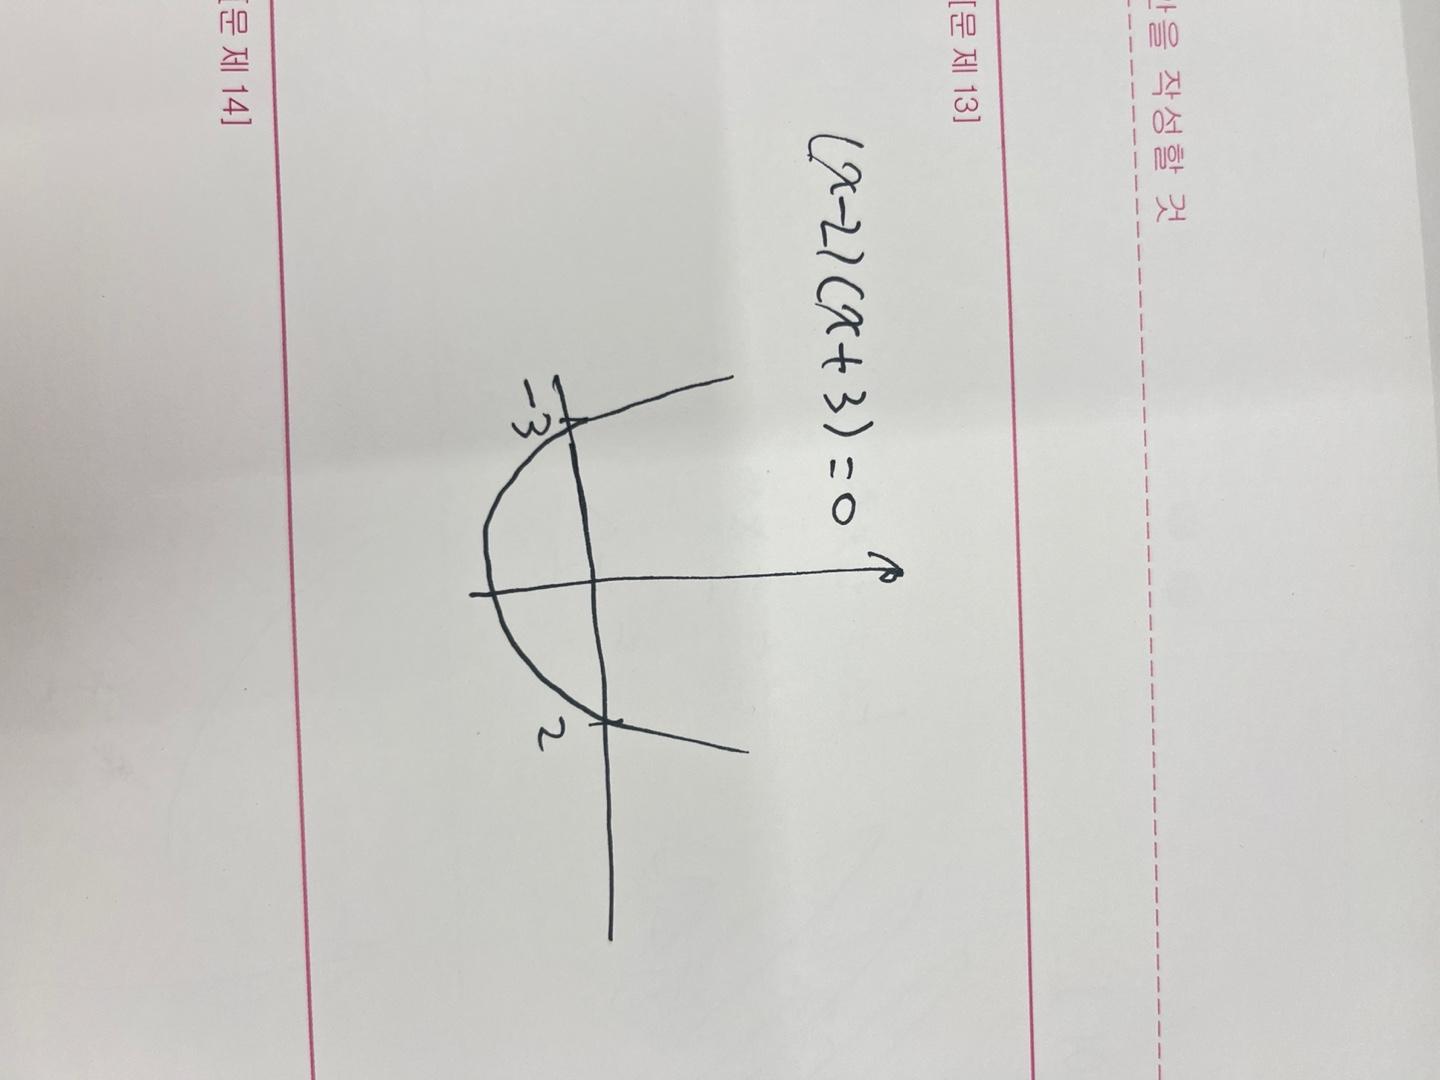 작성할 것
[문 제 13]
(x-2)(x+3)=0
-3
2
[문 제 14]